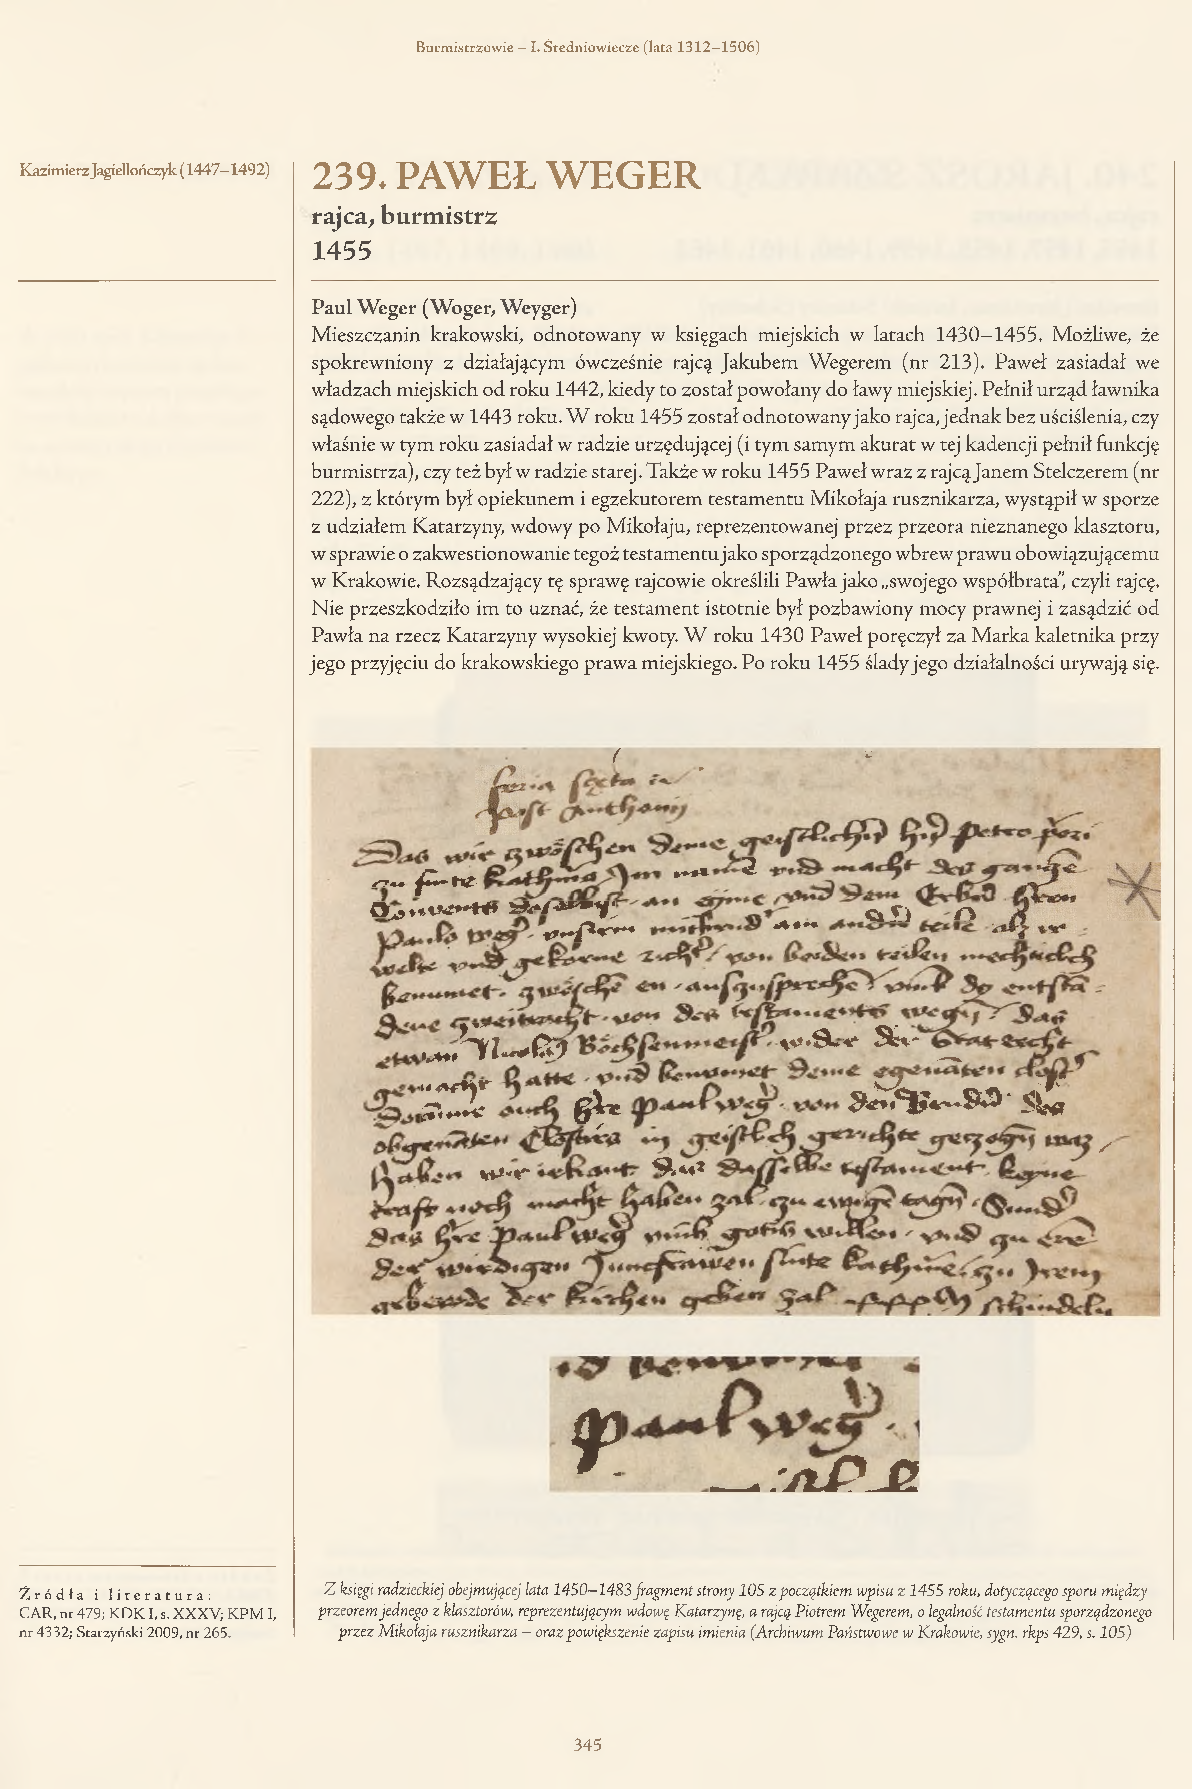 Burmistrzowie – I. Średniowiecze (lata 1312–1506)
Kazimierz Jagiellończyk (1447–1492)
239. PAWEŁ WEGER
rajca, burmistrz
1455
Paul Weger (Woger, Weyger)
Mieszczanin krakowski, odnotowany w księgach miejskich w latach 1430–1455. Możliwe, że
spokrewniony z działającym ówcześnie rajcą Jakubem Wegerem (nr 213). Paweł zasiadał we
władzach miejskich od roku 1442, kiedy to został powołany do ławy miejskiej. Pełnił urząd ławnika
sądowego także w 1443 roku. W roku 1455 został odnotowany jako rajca, jednak bez uściślenia, czy
właśnie w tym roku zasiadał w radzie urzędującej (i tym samym akurat w tej kadencji pełnił funkcję
burmistrza), czy też był w radzie starej. Także w roku 1455 Paweł wraz z rajcą Janem Stelczerem (nr
222), z którym był opiekunem i egzekutorem testamentu Mikołaja rusznikarza, wystąpił w sporze
z udziałem Katarzyny, wdowy po Mikołaju, reprezentowanej przez przeora nieznanego klasztoru,
w sprawie o zakwestionowanie tegoż testamentu jako sporządzonego wbrew prawu obowiązującemu
w Krakowie. Rozsądzający tę sprawę rajcowie określili Pawła jako „swojego współbrata”, czyli rajcę.
Nie przeszkodziło im to uznać, że testament istotnie był pozbawiony mocy prawnej i zasądzić od
Pawła na rzecz Katarzyny wysokiej kwoty. W roku 1430 Paweł poręczył za Marka kaletnika przy
jego przyjęciu do krakowskiego prawa miejskiego. Po roku 1455 ślady jego działalności urywają się.
feria sexta
post Anthonij
Das wir zwöschen deme geistlichen Petro
zu sinte Im und macht des
Convents an dem
am teile
welte und gekorne von beiden teilen
benumet zwöschen
von des testaments das
etwan Böchsenmeist wider der Stat recht
gemacht hatte und benumet deme
auch Paul weg von den des
in gerichte
haben wir irkant das dasselbe testament keyne
craft noch macht haben zal zu
das Paul weg willen und zu
der wirdigen sinte zu Irem
der kirchen geben zal schindeln
Paul weg
Źródła i literatura:
CAR, nr 479; KDK I, s. XXXV; KPM I,
nr 4332; Starzyński 2009, nr 265.
Z księgi radzieckiej obejmującej lata 1450–1483 fragment strony 105 z początkiem wpisu z 1455 roku, dotyczącego sporu między
przeorem jednego z klasztorów, reprezentującym wdowę Katarzynę, a rajcą Piotrem Wegerem, o legalność testamentu sporządzonego
przez Mikołaja rusznikarza – oraz powiększenie zapisu imienia (Archiwum Państwowe w Krakowie, sygn. rkps 429, s. 105)
345